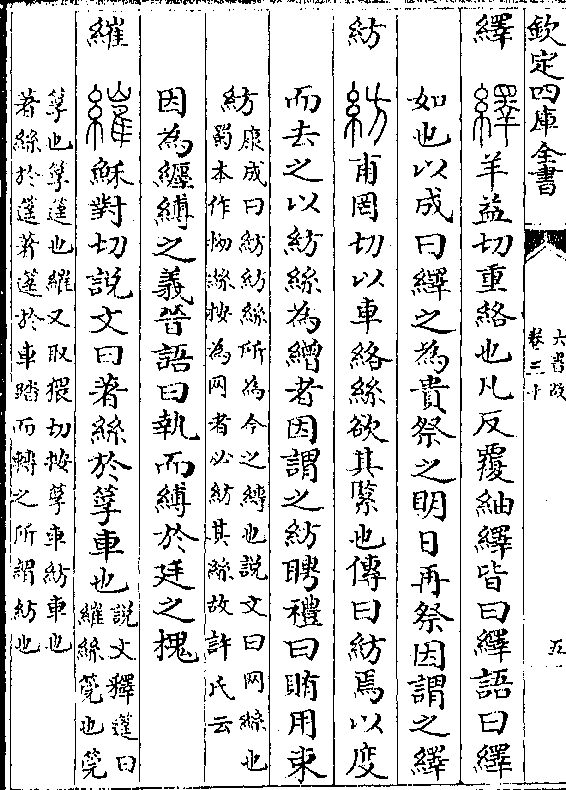 欽定四庫全書
六書故
卷三十
五
繹 繹 羊益切重絡也凡反覆紬繹皆曰繹語曰繹
如也以成曰繹之為貴祭之明日再祭因謂之繹
紡 紡 甫罔切以車絡絲欲其緊也傳曰紡焉以度
而去之以紡絲為繒者因謂之紡聘禮曰賄用束
紡 康成曰紡紡絲所為今之縳也說文曰网絲也
蜀本作拗絲按為网者必紡其絲故許氏云
因為纏縛之義晉語曰執而縛於廷之槐
繀 繀 穌對切說文曰著絲於莩車也 說文籆䈅曰
繀絲筦也筦
莩也莩䈅也繀又取猥切按莩車紡車也
著絲於䈅著䈅於車踏而轉之所謂紡也